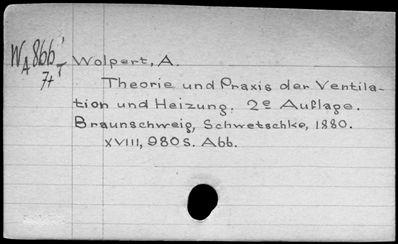 WA 866' T Wolpert, A.
7t
Theorie und Praxis der Ventila-
tion und Heizung. 2e Auflage.
Braunschweig, Schwetschke, 1880.
XVIII, 980 S. Abb.